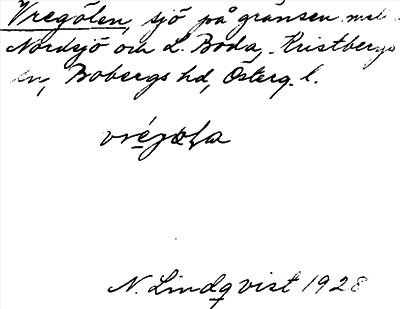 Vregölen, sjö på gränsen mel.
Nordsjö och L. Boda, Kristbergs
sn, Bobergs hd, Österg. l.
N. Lindqvist 1928